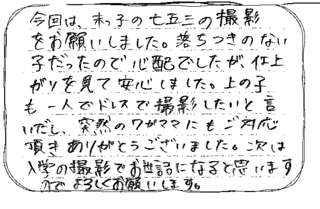 今回は、末っ子の七五三の撮影
をお願いしました。落ちつきのない
子だったので心配でしたが、仕上
がりを見て安心しました。上の子
も一人でドレスで撮影したいと言
いだし、突然のワガママにもご対応
頂きありがとうございました。次は
入学の撮影でお世話になると思います
のでよろしくお願いします。